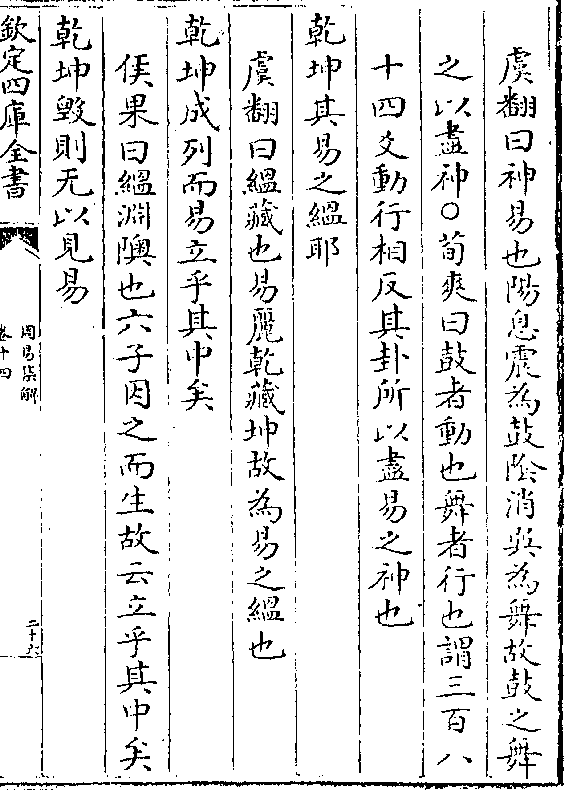 虞翻曰神易也陽息震為鼓陰消巽為舞故鼓之舞
之以盡神○荀爽曰鼓者動也舞者行也謂三百八
十四爻動行相反其卦所以盡易之神也
乾坤其易之緼耶
虞翻曰緼藏也易麗乾藏坤故為易之緼也
乾坤成列而易立乎其中矣
侯果曰緼淵隩也六子因之而生故云立乎其中矣
乾坤毀則无以見易
欽定四庫全書
周易集解
卷十四